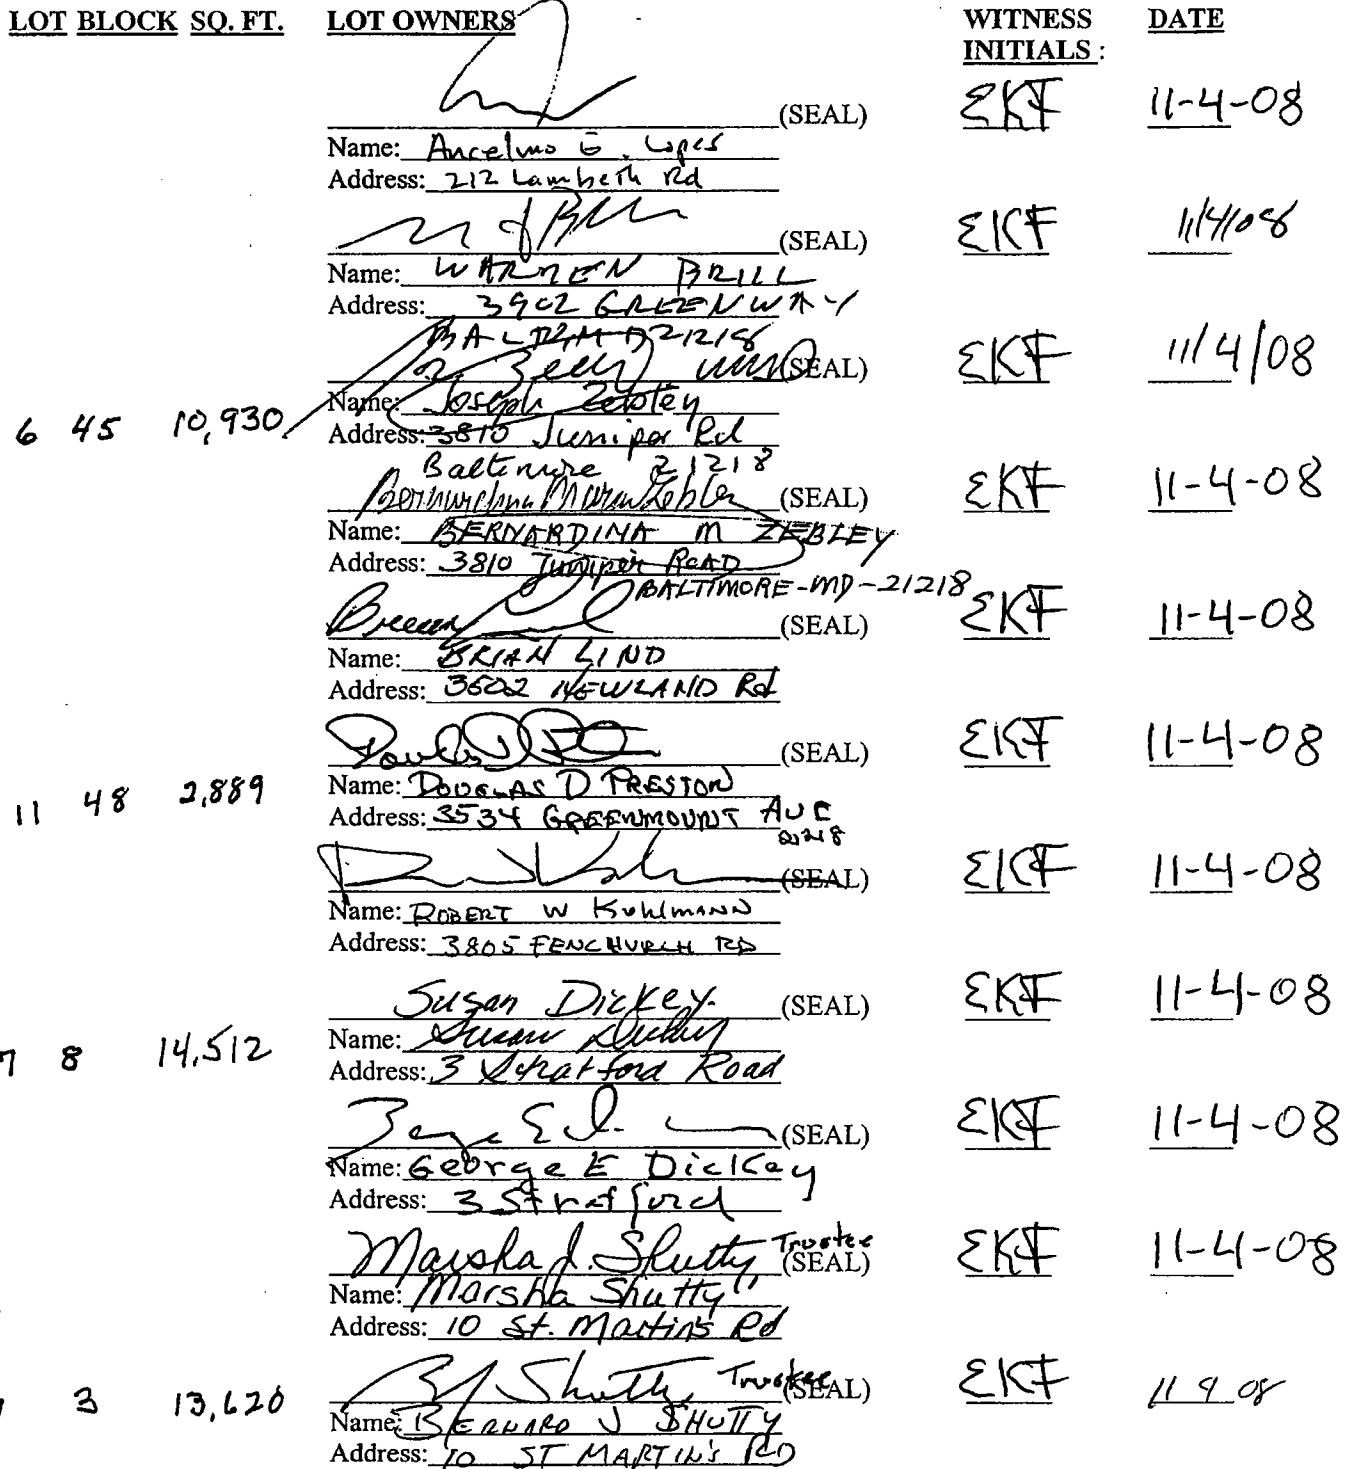 LOT BLOCK SQ. FT. LOT OWNERS WITNESS INITIALS : DATE
(SEAL) EKF 11-4-08
Name: Ancelmo E. Lopes
Address: 212 Lambeth Rd
(SEAL) EKF 11/4/08
Name: WARREN BRILL
Address: 3902 GREENWAY
BALTO MD 21218
(SEAL) EKF 11/4/08
Name: Joseph Zebley
6 45 10,930 Address: 3810 Juniper Rd
Baltimore 21218
(SEAL) EKF 11-4-08
Name: BERNARDINA M ZEBLEY
Address: 3810 Juniper ROAD
BALTIMORE-MD-21218
(SEAL) EKF 11-4-08
Name: BRIAN LIND
Address: 3602 NEWLAND Rd
(SEAL) EKF 11-4-08
11 48 2,889 Name: DOUGLAS D PRESTON
Address: 3534 GREENMOUNT AVE
21218
(SEAL) EKF 11-4-08
Name: ROBERT W KUHLMANN
Address: 3805 FENCHURCH RD
Susan Dickey (SEAL) EKF 11-4-08
7 8 14,512 Name: Susan Dickey
Address: 3 Stratford Road
(SEAL) EKF 11-4-08
Name: George E Dickey
Address: 3 Stratford
Marsha J. Shutty, Trustee (SEAL) EKF 11-4-08
Name: Marsha Shutty
Address: 10 St. Martins Rd
3 13,620 BJ Shutty, Trustee (SEAL) EKF 11 9 08
Name: BERNARD J SHUTTY
Address: 10 ST MARTIN'S RD